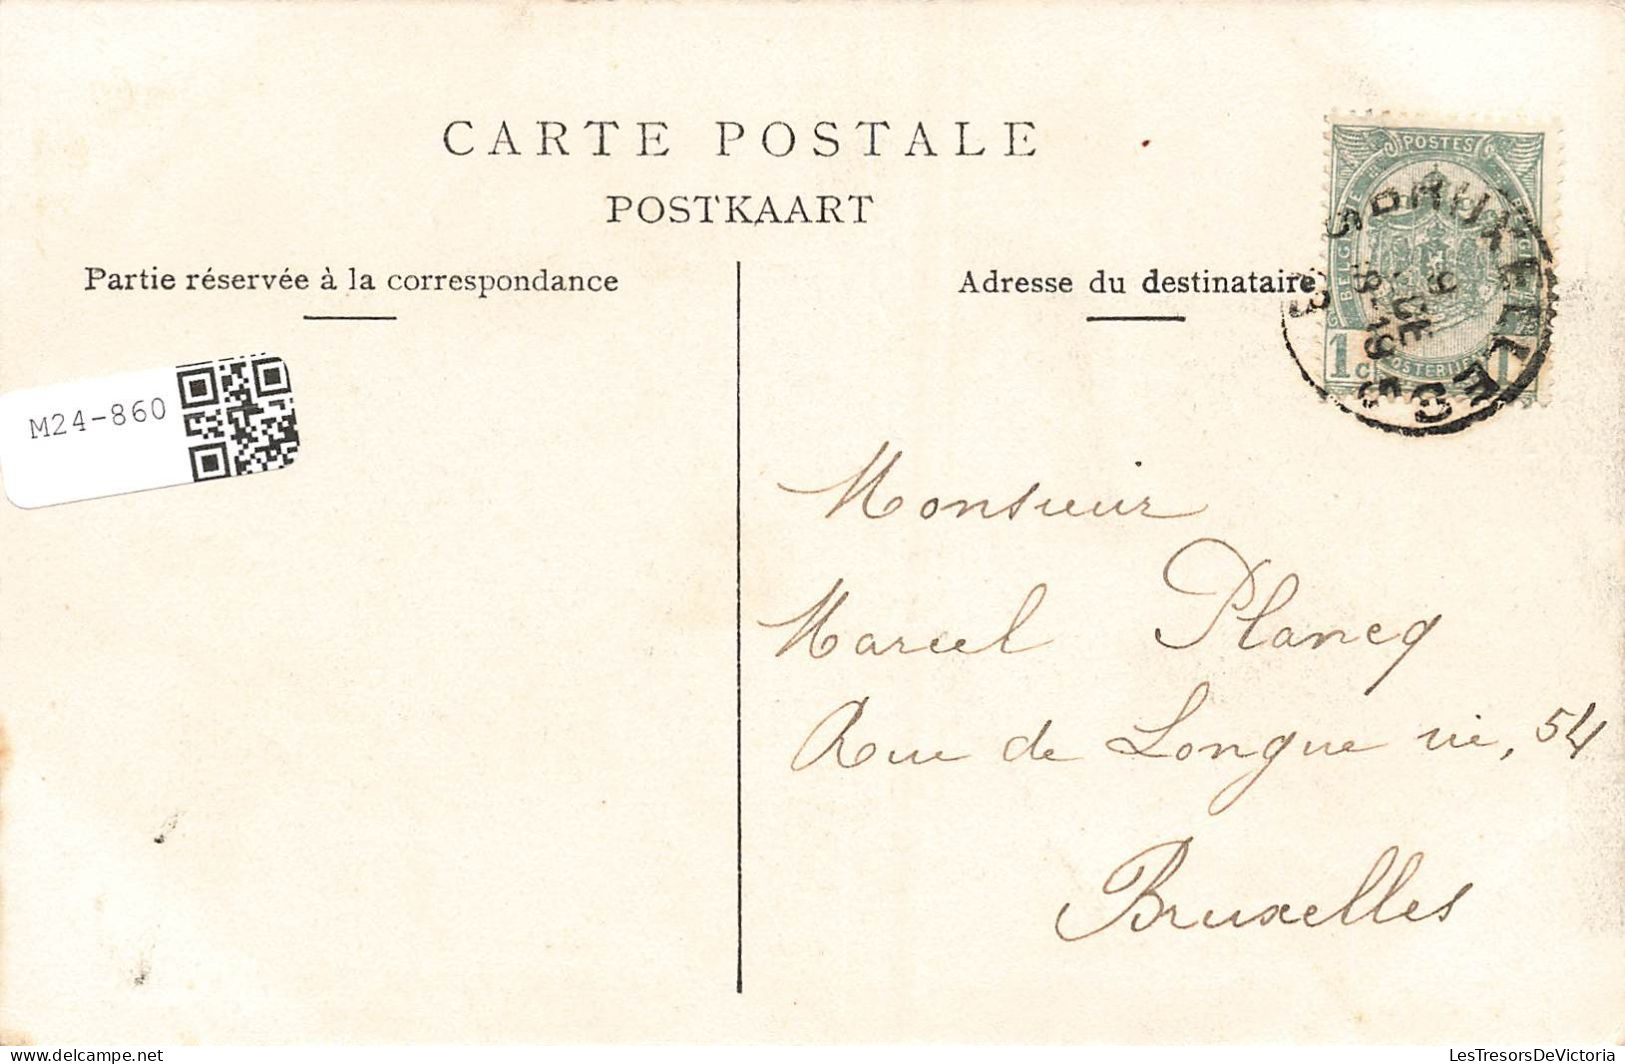 CARTE POSTALE
POSTKAART
Partie réservée à la correspondance
Adresse du destinataire
POSTES
BELGIQUE
1c
POSTERIJEN
1
M24-860
Monsieur
Marcel Plancq
Rue de Longue vie, 54
Bruxelles
LesTresorsDeVictoria